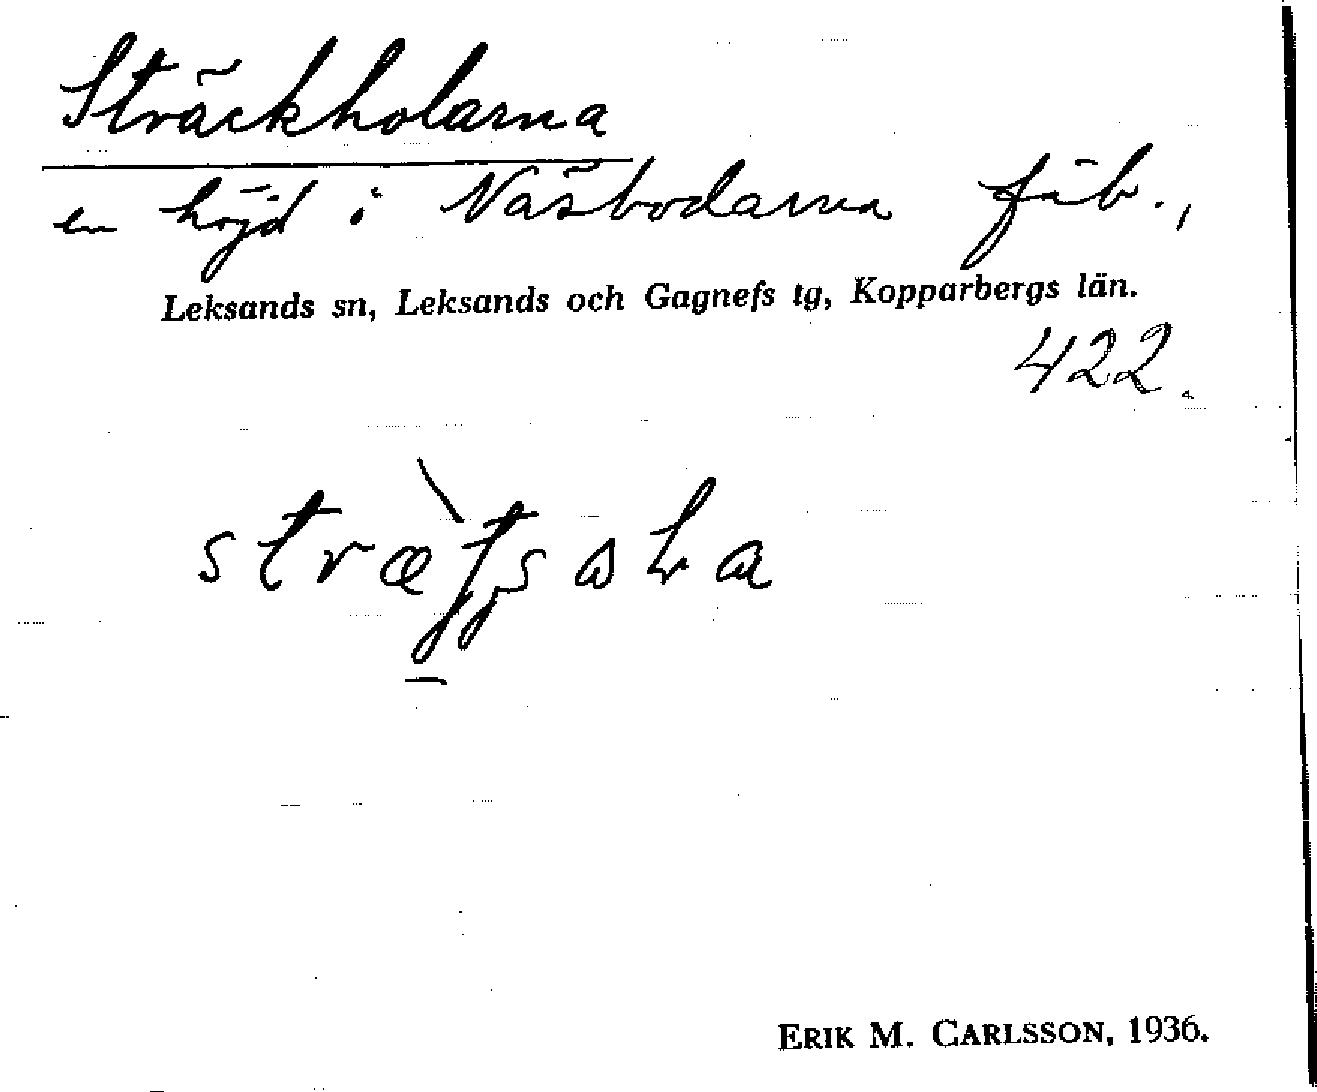 Sträckholarna
en höjd i Näsbodarna fäb.,
Leksands sn, Leksands och Gagnefs tg, Kopparbergs län.
422.
ERIK M. CARLSSON, 1936.